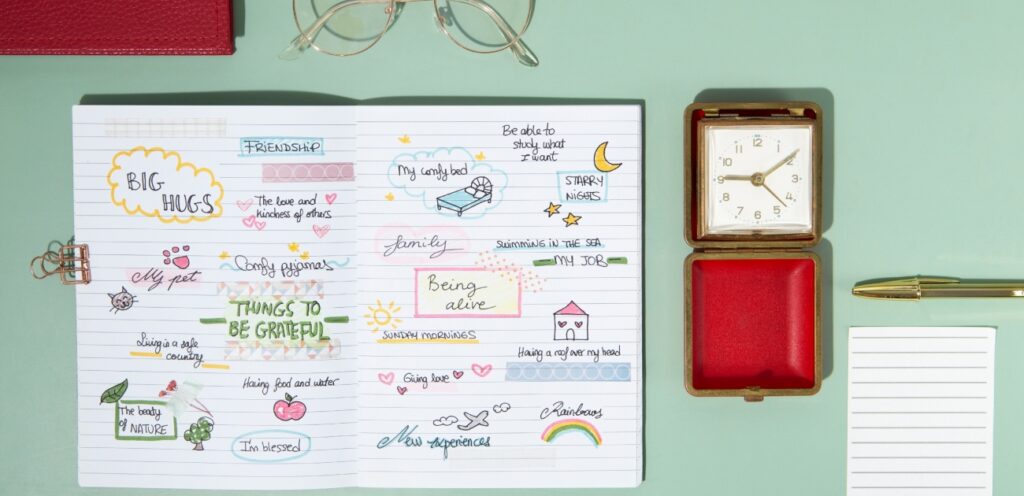 FRIENDSHIP
BIG
HUGS
The love and
kindness of others
My pet
Comfy pyjamas
THINGS TO
BE GRATEFUL
Living in a safe
country
Having food and water
The beauty
of NATURE
I'm blessed
Be able to
study what
I want
My comfy bed
STARRY
NIGHTS
family
SWIMMING IN THE SEA
MY JOB
Being
alive
SUNDAY MORNINGS
Having a roof over my head
Giving love
Rainbows
New experiences
12
11
1
10
2
9
3
8
4
7
5
6